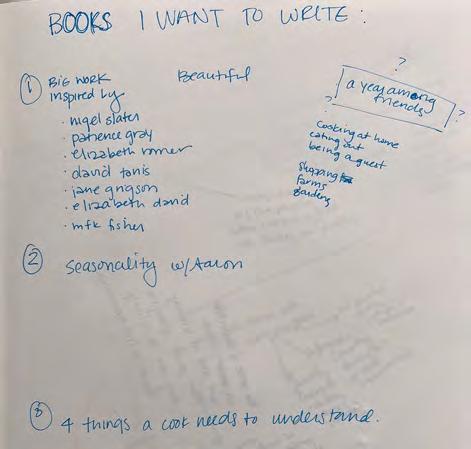 BOOKS I WANT TO WRITE:
① BIG WORK Beautiful
inspired by
· nigel slater
· patience gray
· elizabeth romer
· david tanis
· jane grigson
· elizabeth david
· mfk fisher
?
a year among
? friends ?
cooking at home
eating out
being a guest
shopping
farms
gardens
② Seasonality w/Aaron
③ 4 things a cook needs to understand.